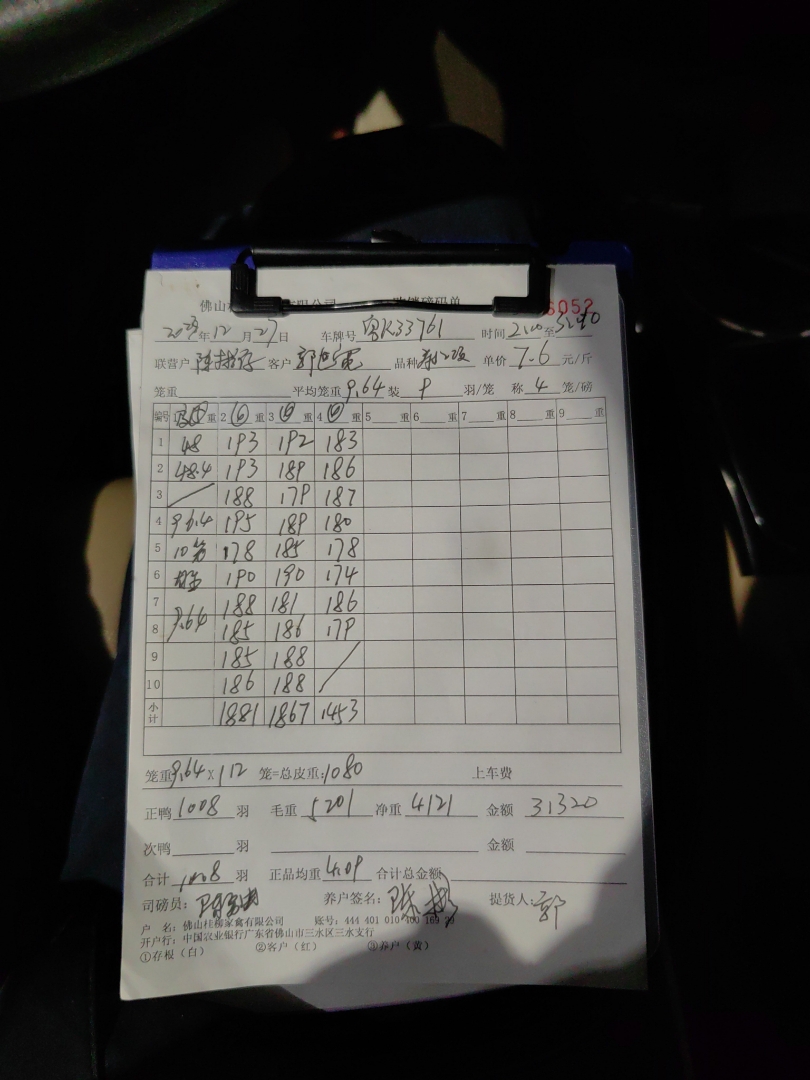 佛山 有限公司 磅码单 6052
2023年12月27日 车牌号 粤K33761 时间 2:00 至
联营户 陈 客户 郭 品种 单价 7.6 元/斤
笼重 平均笼重 9.64 装 9 羽/笼 称 4 笼/磅
编号 重 2 ⑥ 重 3 ⑥ 重 4 ⑥ 重 5 重 6 重 7 重 8 重 9 重
1 48 193 192 183
2 48.4 193 189 186
3 188 179 187
4 96.4 195 189 180
5 10笼 178 185 178
6 190 190 174
7 188 181 186
8 9.64 185 186 179
9 185 188
10 186 188
小计 1881 1867 1453
笼重 9.64 X 112 笼=总皮重: 1080 上车费
正鸭 1008 羽 毛重 5201 净重 4121 金额 31320
次鸭 羽 金额
合计 1008 羽 正品均重 4.09 合计总金额
司磅员: 养户签名: 陈 提货人: 郭
户 名: 佛山桂柳家禽有限公司 账号: 444 401 010 400 169 29
开户行: 中国农业银行广东省佛山市三水区三水支行
①存根(白) ②客户(红) ③养户(黄)